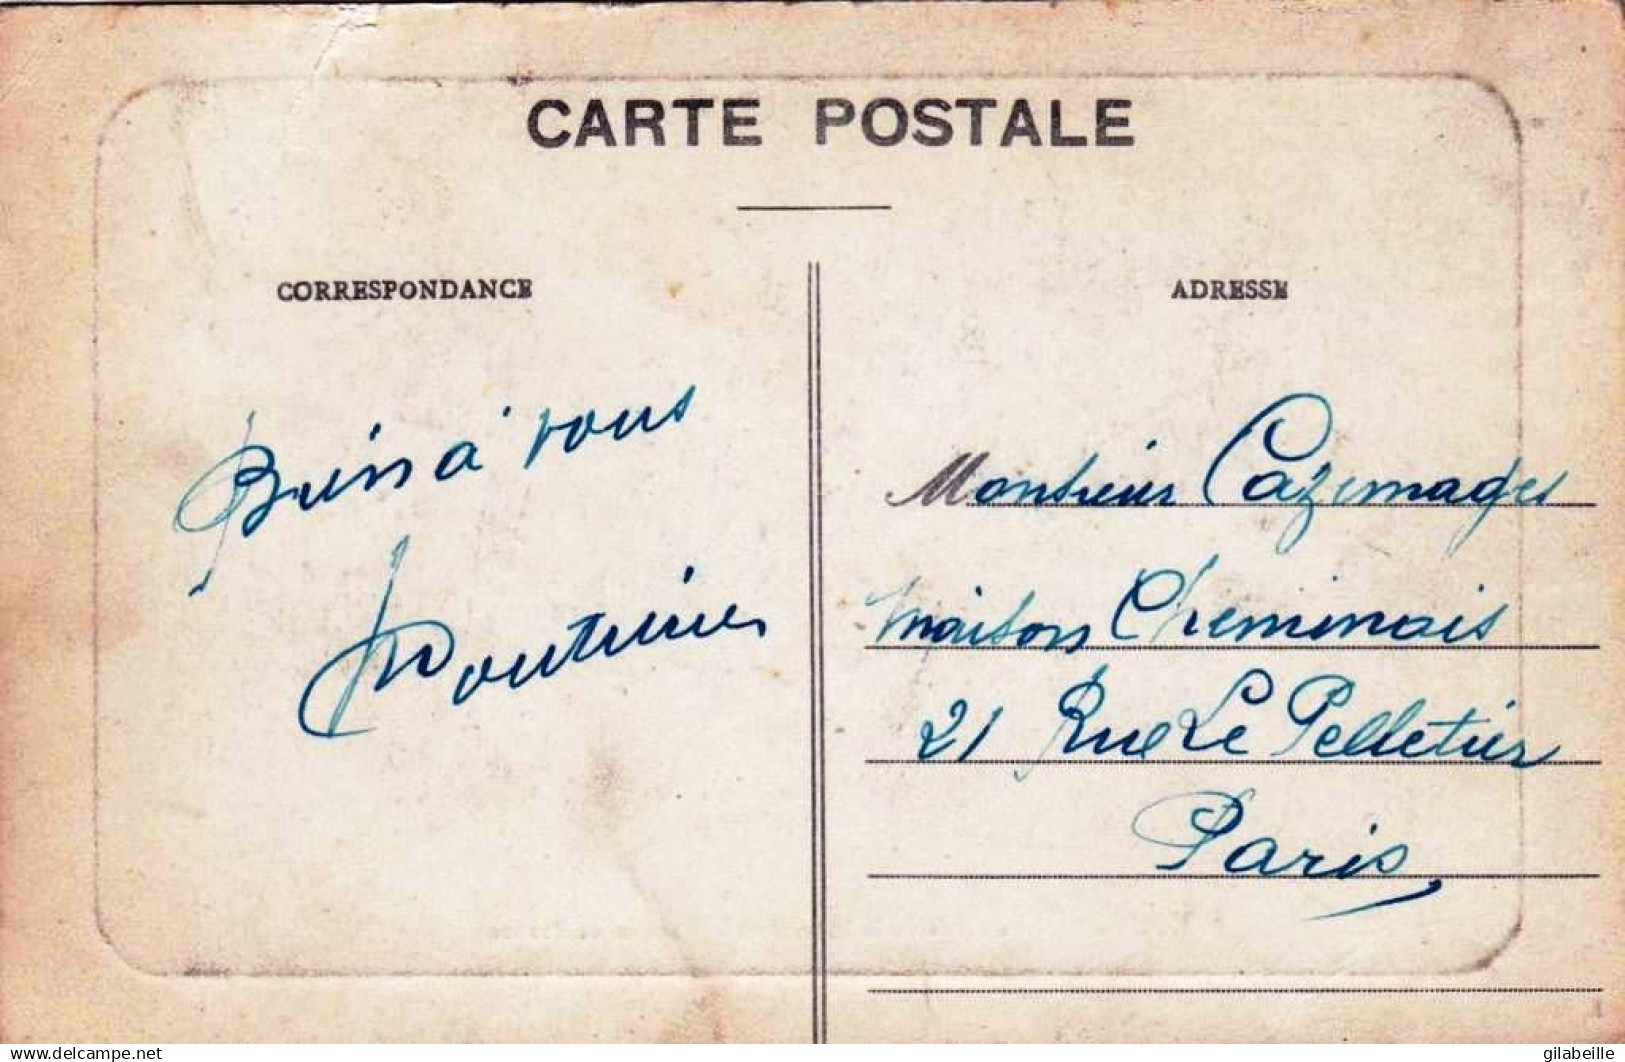 CARTE POSTALE
CORRESPONDANCE
ADRESSE
Bien à vous
Monsieur Cazemages
maison Cheminais
21 Rue Le Pelletier
Paris
www.delcampe.net
gilabeille